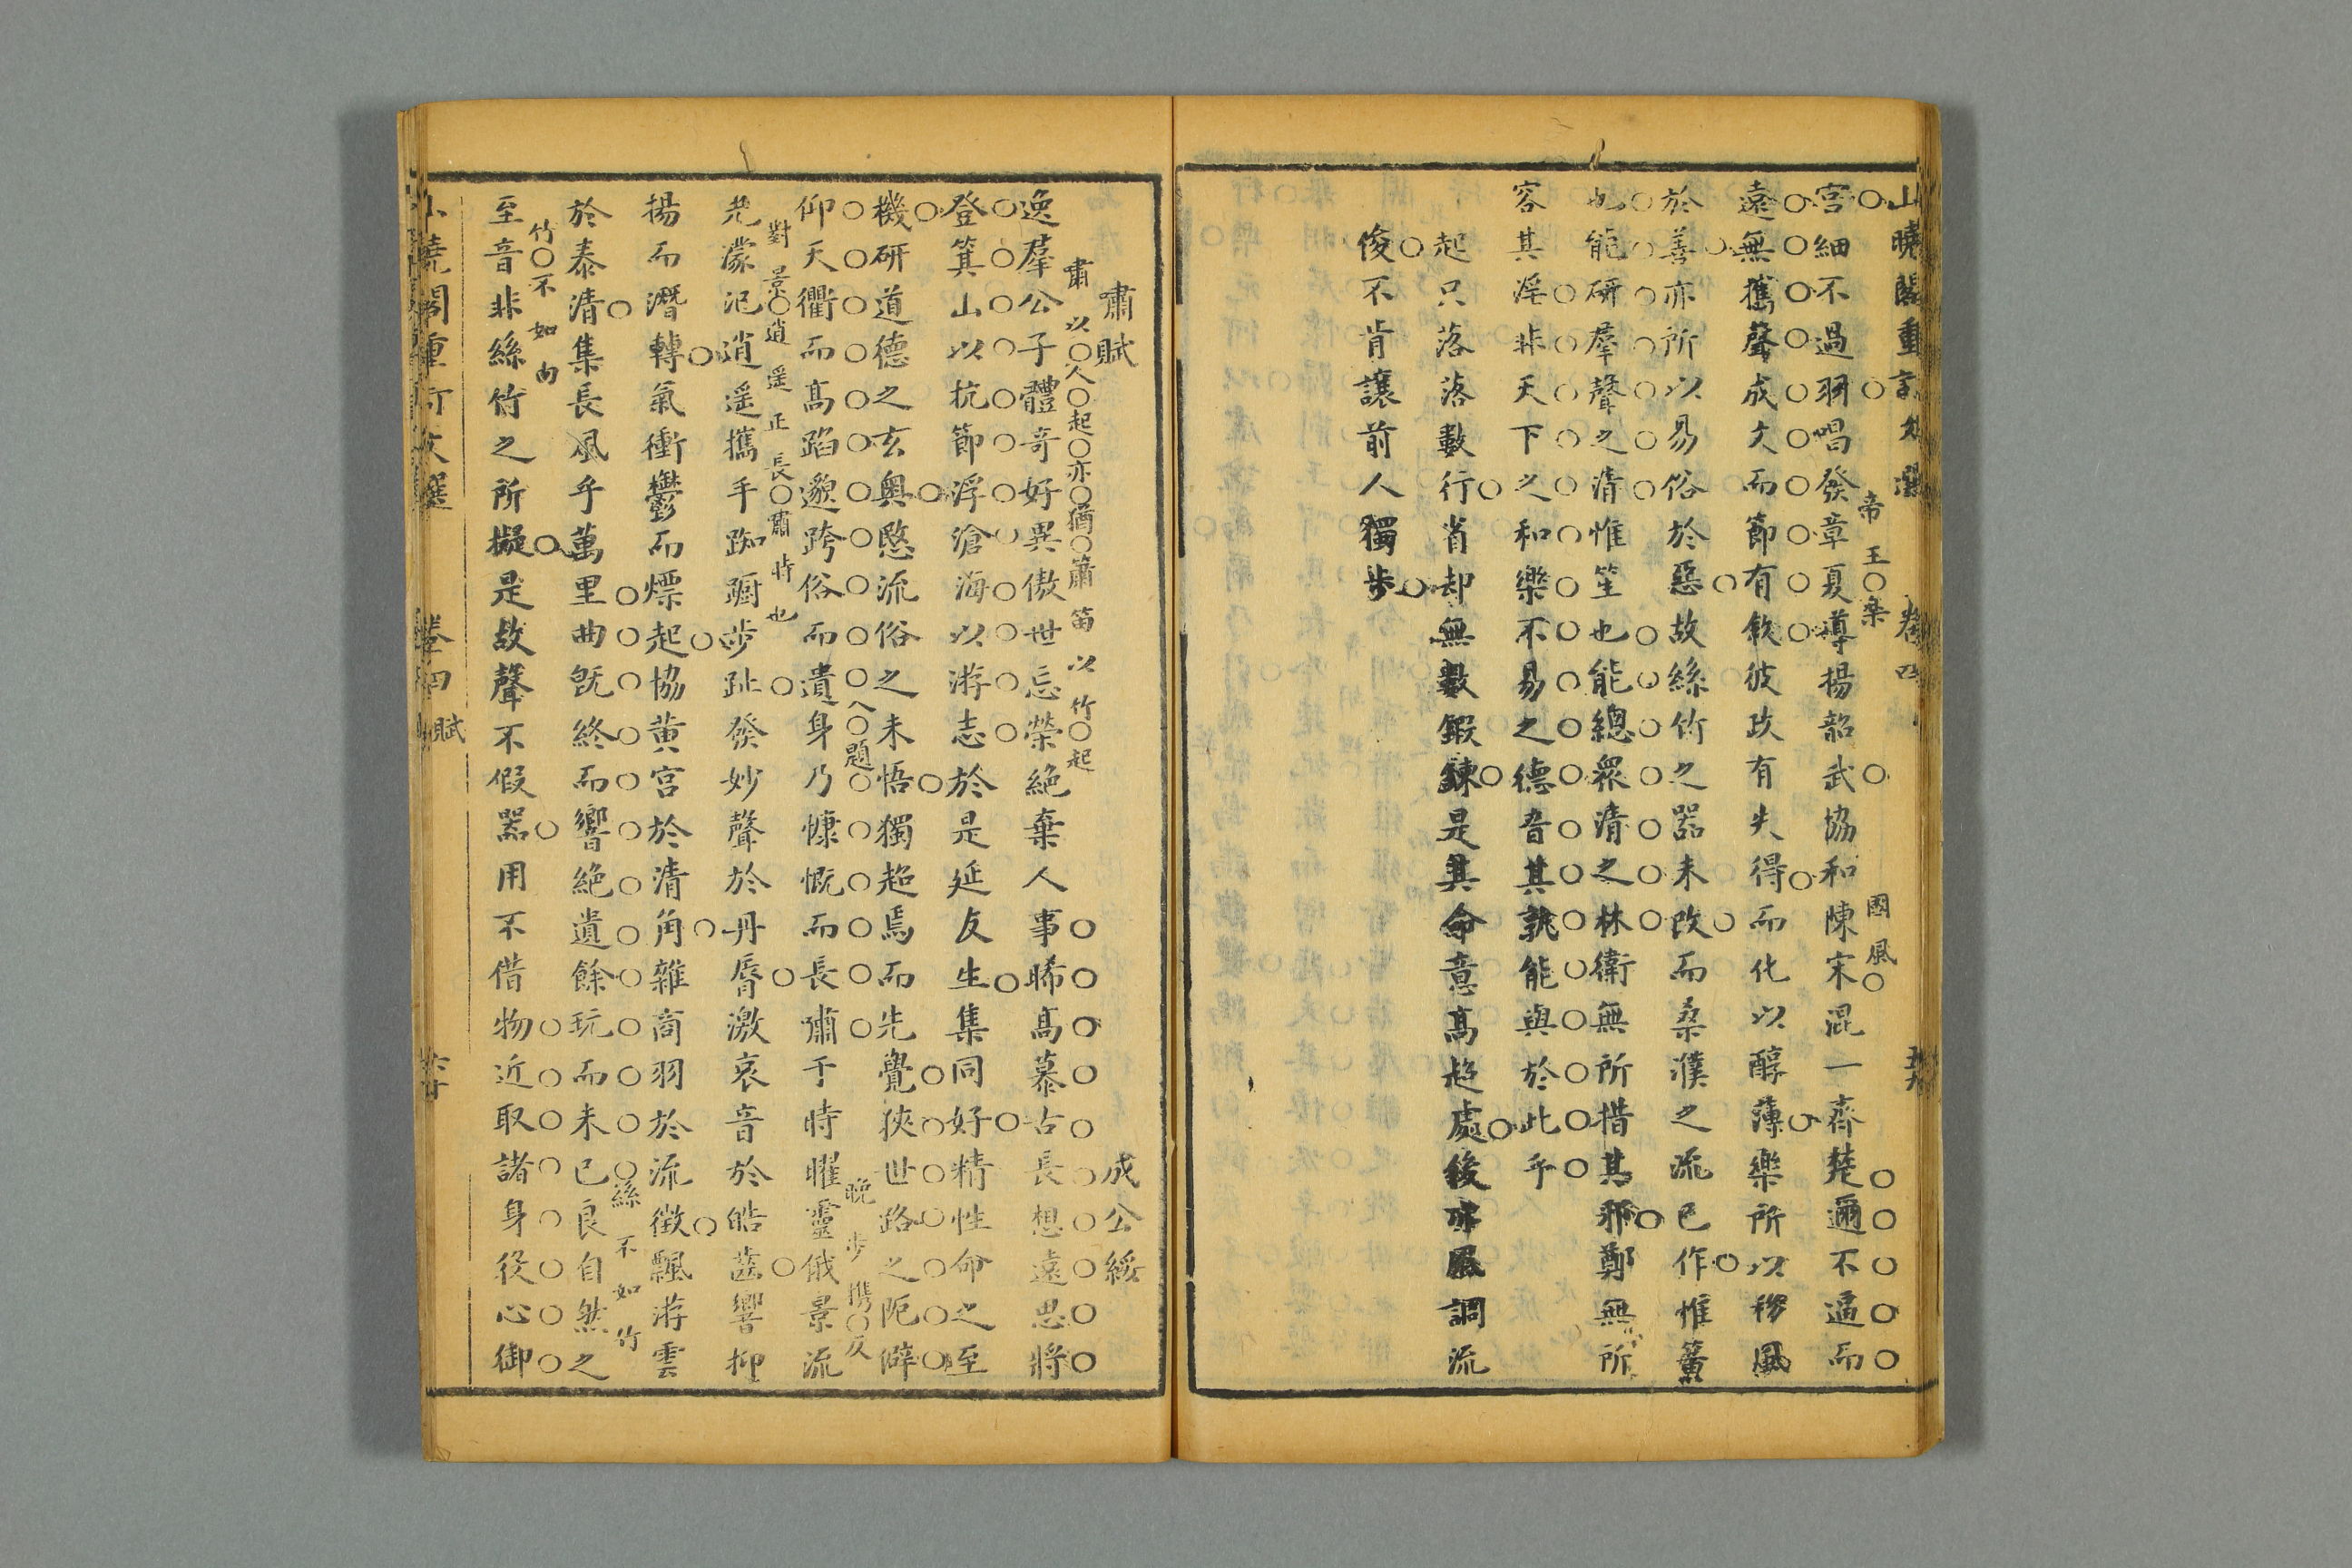 山曉閣重訂文選 卷四
宮細不過羽唱發章夏導揚韶武協和陳宋混一齊楚邇不逼而
帝王樂
國風
遠無攜聲成文而節有敘彼政有失得而化以醇薄樂所以移風
於善亦所以易俗於惡故絲竹之器未改而桑濮之流已作惟簧
也能研羣聲之清惟笙也能總衆清之林衛無所措其邪鄭無所
容其淫非天下之和樂不易之德音其孰能與於此乎
起只落落數行省却無數鍛鍊是其命意高超處後來風調流
俊不肯讓前人獨步
嘯賦 成公綏
嘯以人起亦猶簫笛以竹起
逸羣公子體奇好異傲世忘榮絕棄人事晞高慕古長想遠思將
登箕山以抗節浮滄海以游志於是延友生集同好精性命之至
機研道德之玄奥愍流俗之未悟獨超焉而先覺狹世路之阨僻
入題
晚步攜友
仰天衢而高蹈邈跨俗而遺身乃慷慨而長嘯于時曜靈俄景流
對景逍遥正長嘯時也
光濛汜逍遥攜手踟躕步趾發妙聲於丹脣激哀音於皓齒響抑
揚而潛轉氣衝鬱而熛起協黄宫於清角雜商羽於流徵飄游雲
絲不如竹
於泰清集長風乎萬里曲既終而響絕遺餘玩而未已良自然之
竹不如肉
至音非絲竹之所擬是故聲不假器用不借物近取諸身役心御
山曉閣重訂文選 卷四 賦